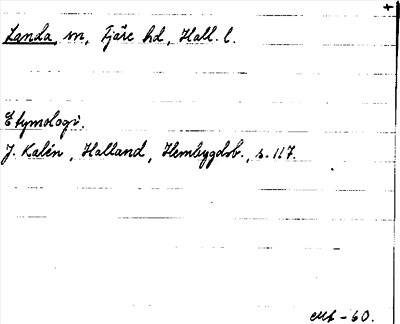 +
Landa, m, Fjäre hd, Hall. l.
Etymologi.
J. Kalén, Halland, Hembygdsb., s. 117.
-60.